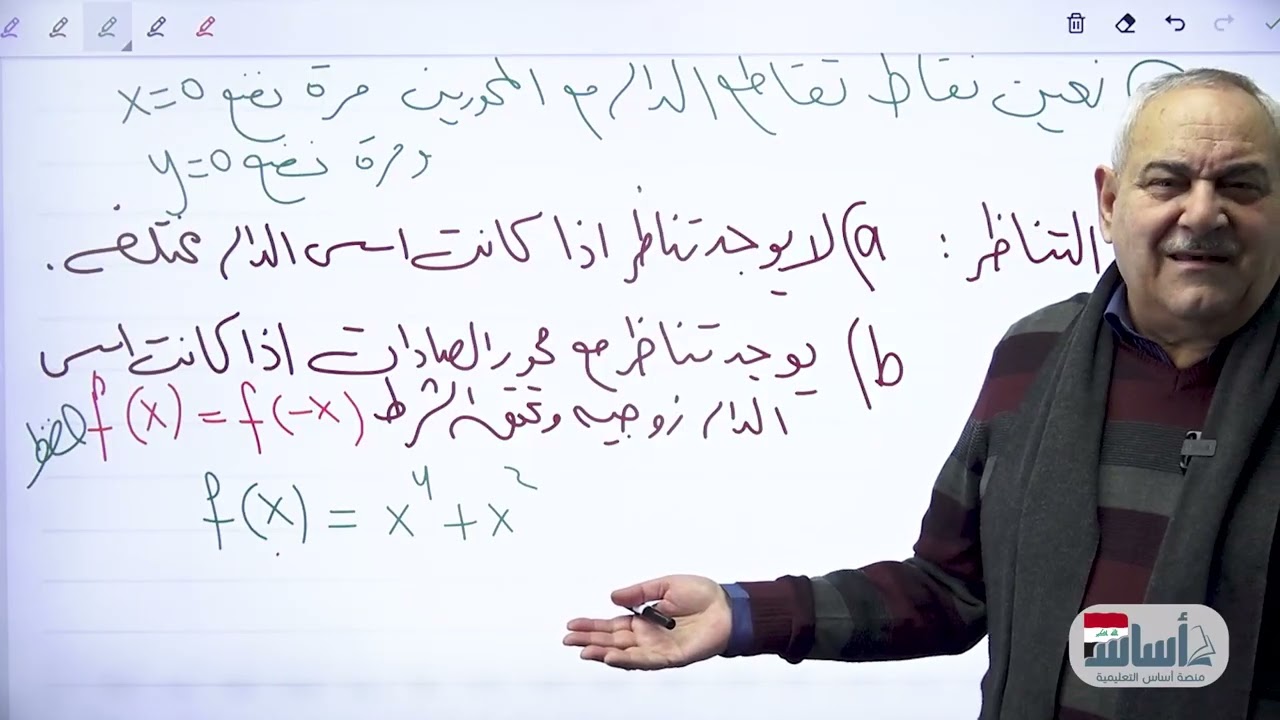 نعين نقاط تقاطع الدالة مع المحورين مرة نضع x=0
ومرة نضع y=0
التناظر : a) لا يوجد تناظر اذا كانت اسس الدالة مختلفة .
b) يوجد تناظر مع محور الصادات اذا كانت اسس
الدالة زوجية وتحقق الشرط f(x) = f(-x)
f(x) = x⁴ + x²
أساس
منصة أساس التعليمية